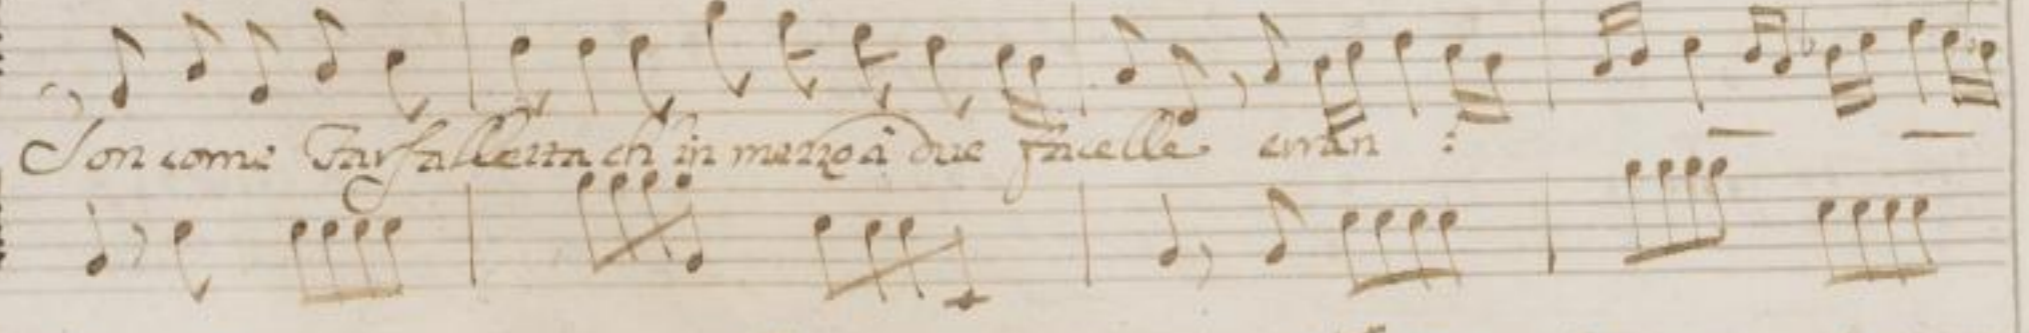 Son come Farfalletta ch in mezzo à due facelle erran :